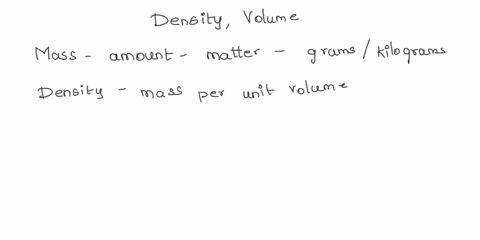 Density, Volume
Mass - amount - matter - grams / kilograms
Density - mass per unit volume